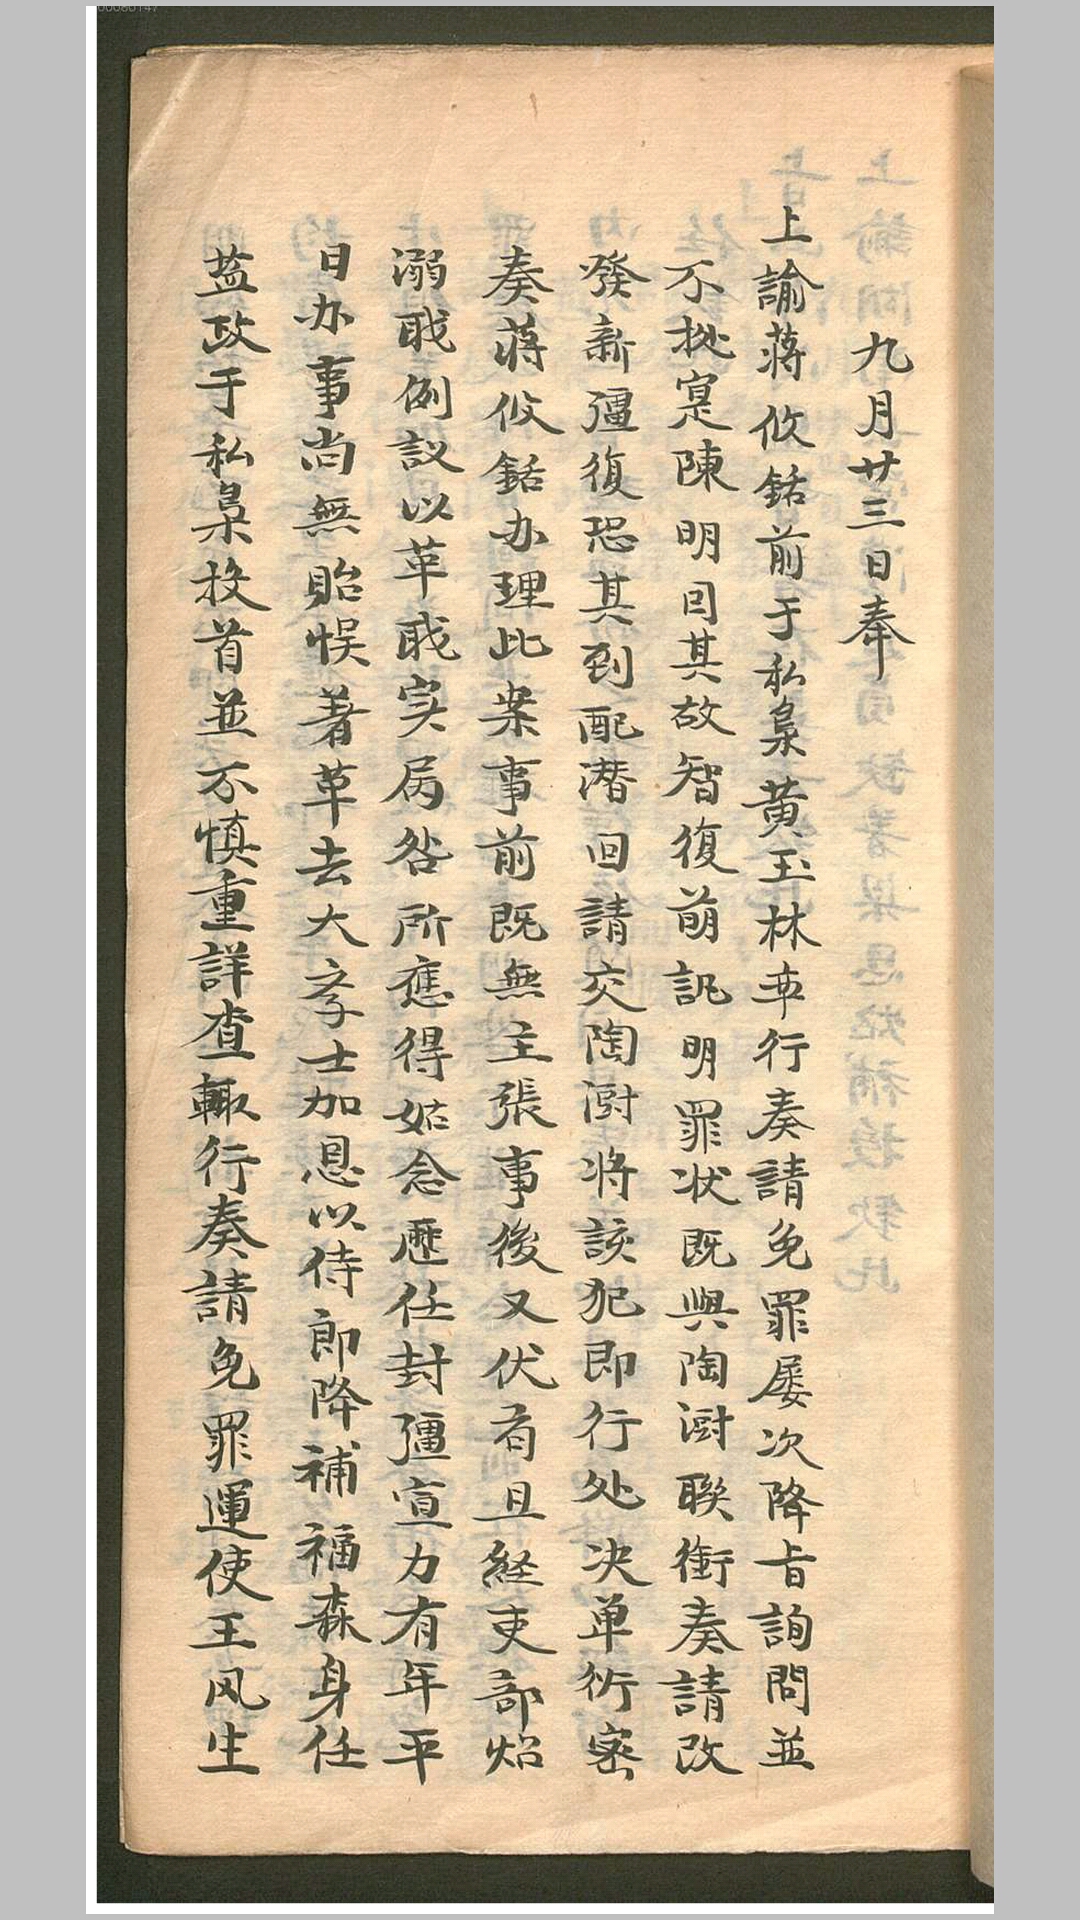 00080147
九月廿三日奉
上諭蒋攸銛前于私梟黄玉林率行奏請免罪屡次降旨詢問並
不據寔陳明因其故智復萌訊明罪状既與陶澍聯銜奏請改
發新疆復恐其到配潜回請交陶澍将該犯即行处决单銜密
奏蒋攸銛办理此案事前既無主張事後又伏有且経吏部炤
溺职例议以革职实属咎所應得姑念歷任封疆宣力有年平
日办事尚無貽悮著革去大学士加恩以侍郎降補福森身任
盐政于私梟投首並不慎重詳查輒行奏請免罪運使王凤生